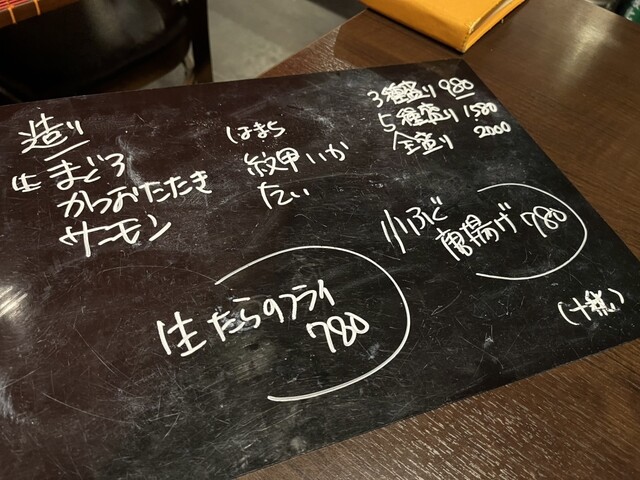 造り
生まぐろ
かつおたたき
サーモン
はまち
紋甲いか
たい
3種盛り 980
5種盛り 1580
全盛り 2000
唐揚げ 780
生たらのフライ
780